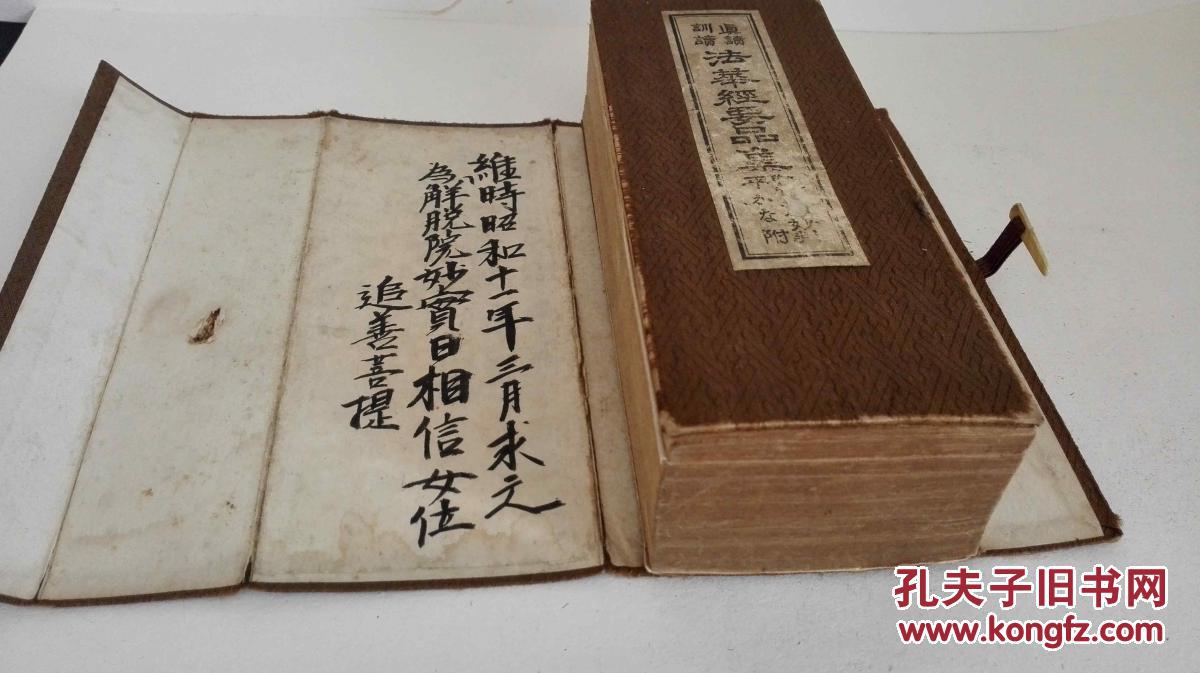 眞讀
訓讀
法華經要品集
平かな附
維時昭和十一年三月求
為解脱院妙實日相信女位
追善菩提
孔夫子旧书网
www.kongfz.com